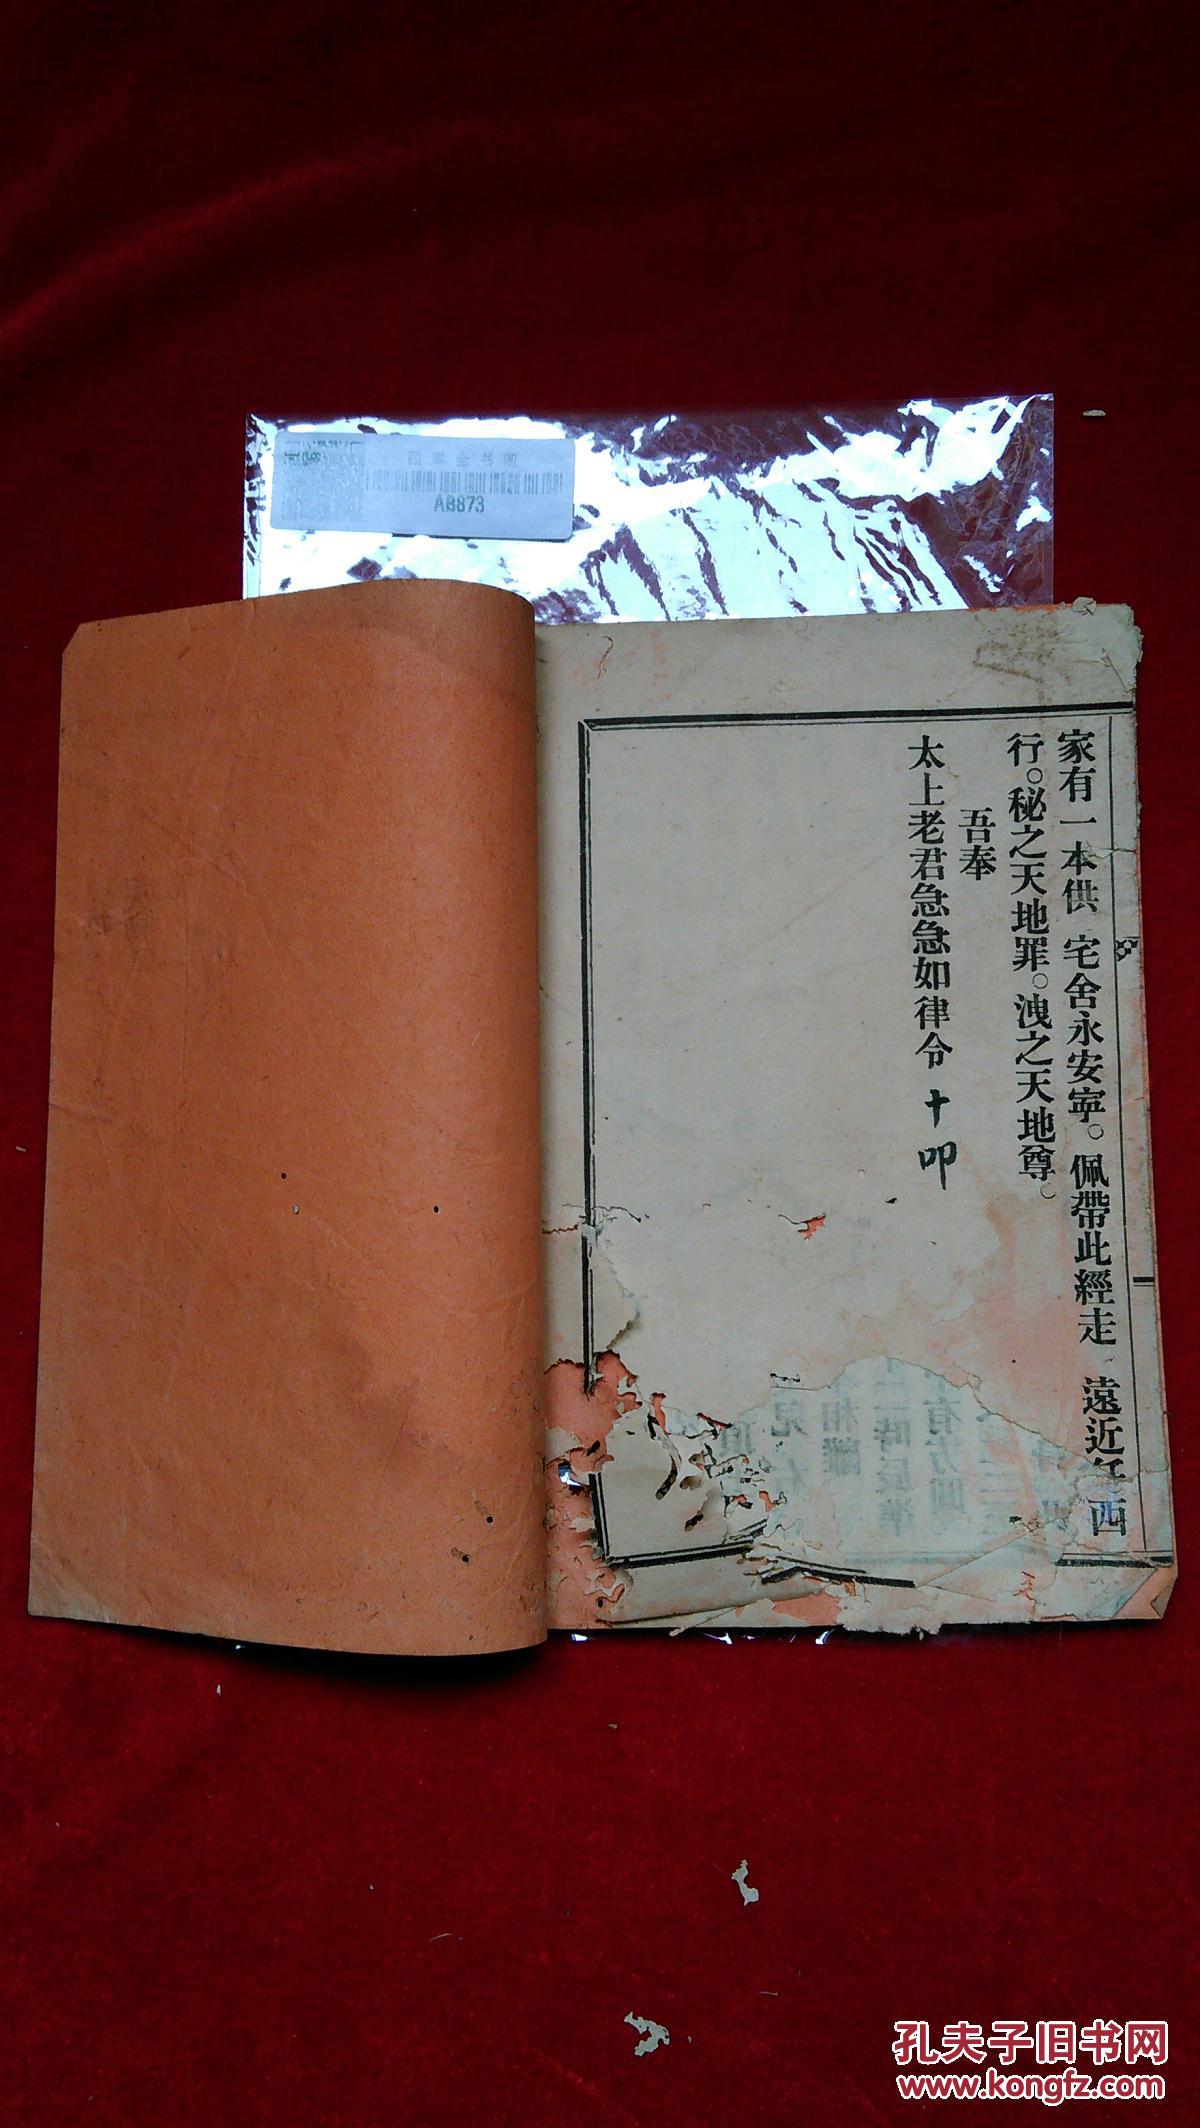 四库全书阁
AB873
家有一本供 宅舍永安寧。佩帶此經走 遠近任西
行。秘之天地罪。洩之天地尊。
吾奉
太上老君急急如律令 十叩
孔夫子旧书网
www.kongfz.com